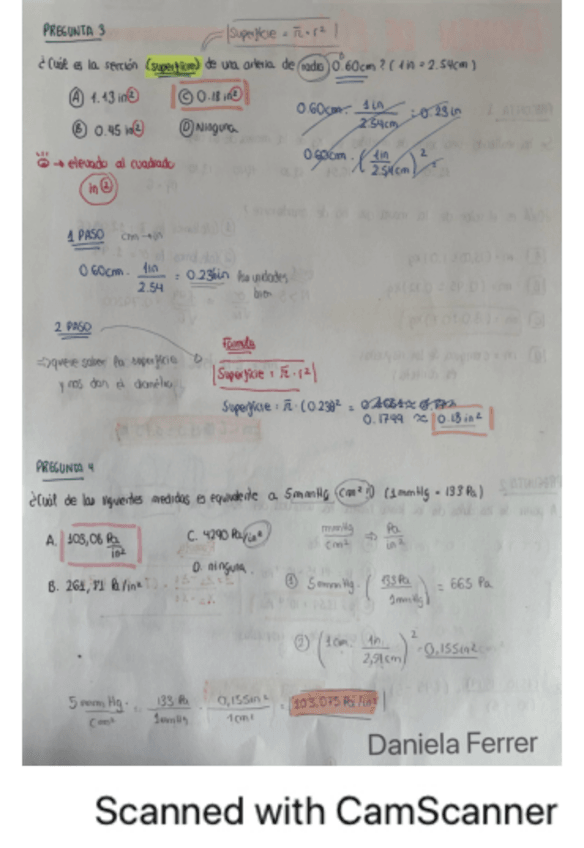 PREGUNTA 3
Superficie = π · r²
¿Cuál es la sección (superficie) de una arteria de radio 0.60cm? (1in = 2.54cm)
Ⓐ 1.13 in²
Ⓒ 0.18 in²
Ⓑ 0.45 in²
Ⓓ Ninguna
0.60cm · 1in / 2.54cm = 0.23in
0.60cm · (1in / 2.54cm)²
→ elevado al cuadrado
in²
1 PASO cm→in
0.60cm · 1in / 2.54 = 0.236in
bien
2 PASO
Fórmula
⇒ quiere saber la superficie
Superficie = π · r²
y nos dan el
Superficie = π · (0.23)² =
0.1799 ≈ 0.18 in²
PREGUNTA 4
¿Cuál de las siguientes medidas es equivalente a 5mmHg (1mmHg = 133 Pa)
A. 103,06 Pa/in²
C. 4290 Pa/in²
D. ninguna.
B. 261, Pa/in²
mmHg/cm² ⇒ Pa/in²
① 5mmHg · (133Pa / 1mmHg) = 665 Pa
② (1cm · 1in / 2,54cm)² 0,155in²
5 mmHg/cm² · 133 Pa/1mmHg · 0,155in²/1cm² = 103.075 Pa/in²
Daniela Ferrer
Scanned with CamScanner